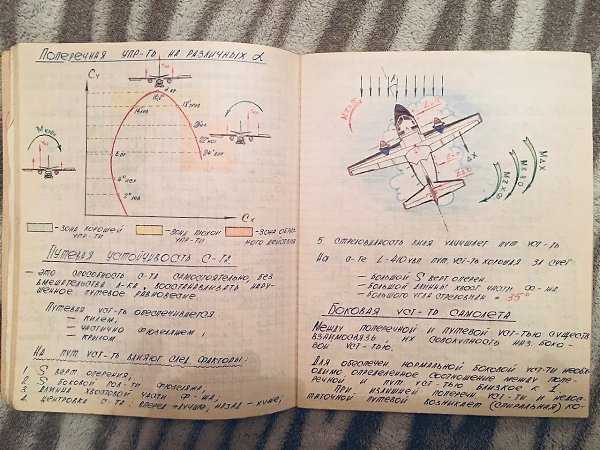 Поперечная упр-ть на различных α
Cy
α кр
16,2°
18°
14°
6°
4°
2°
22°
24°
Cx
- зона хорошей
упр-ти
- зона плохой
упр-ти
- зона обрат-
ного действия
Путевая устойчивость с-та
- это способность с-та самостоятельно, без
вмешательства л-ка, восстанавливать нару-
шенное путевое равновесие.
Путевая уст-ть обеспечивается
- килем,
- частично фюзеляжем,
- крылом
На пут. уст-ть влияют след. факторы:
1 S верт. оперения,
2 S боковой пов-ти фюзеляжа,
3 длинна хвостовой части ф-жа;
4 центровка с-та: вперед - лучше, назад - хуже;
ΔX
5 стреловидность киля улучшает пут. уст-ть.
На с-те L-410 УВП пут. уст-ть хорошая за счет
- большой S верт. оперен.
- большой длинны хвост. части ф-жа
- большого угла стреловидн = 35°
Боковая уст-ть самолета
Между поперечной и путевой уст-тью существ
взаимосвязь, их совокупность наз. боко-
вой уст-тью.
Для обеспечен. нормальной боковой уст-ти необх-
димо определенное соотношение между попе-
речной и пут. уст-тью близкое к 1
При излишней поперечн. уст-ти и недос-
таточной путевой возникает (спиральная) ко-